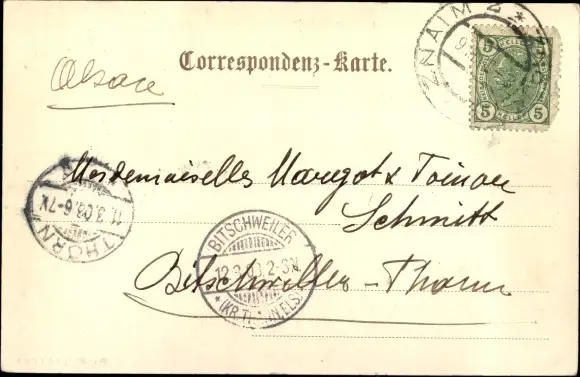 Correspondenz-Karte.
Alsace
ZNAIM 2 *
5 HELLER 5
Mesdemoiselles Margot &
Schmitt
Bitschwiller-Thann
THORN
11.3.03.6-7N
BITSCHWEILER
12.3.03.2-3N
* (KR.THANN ELS.)